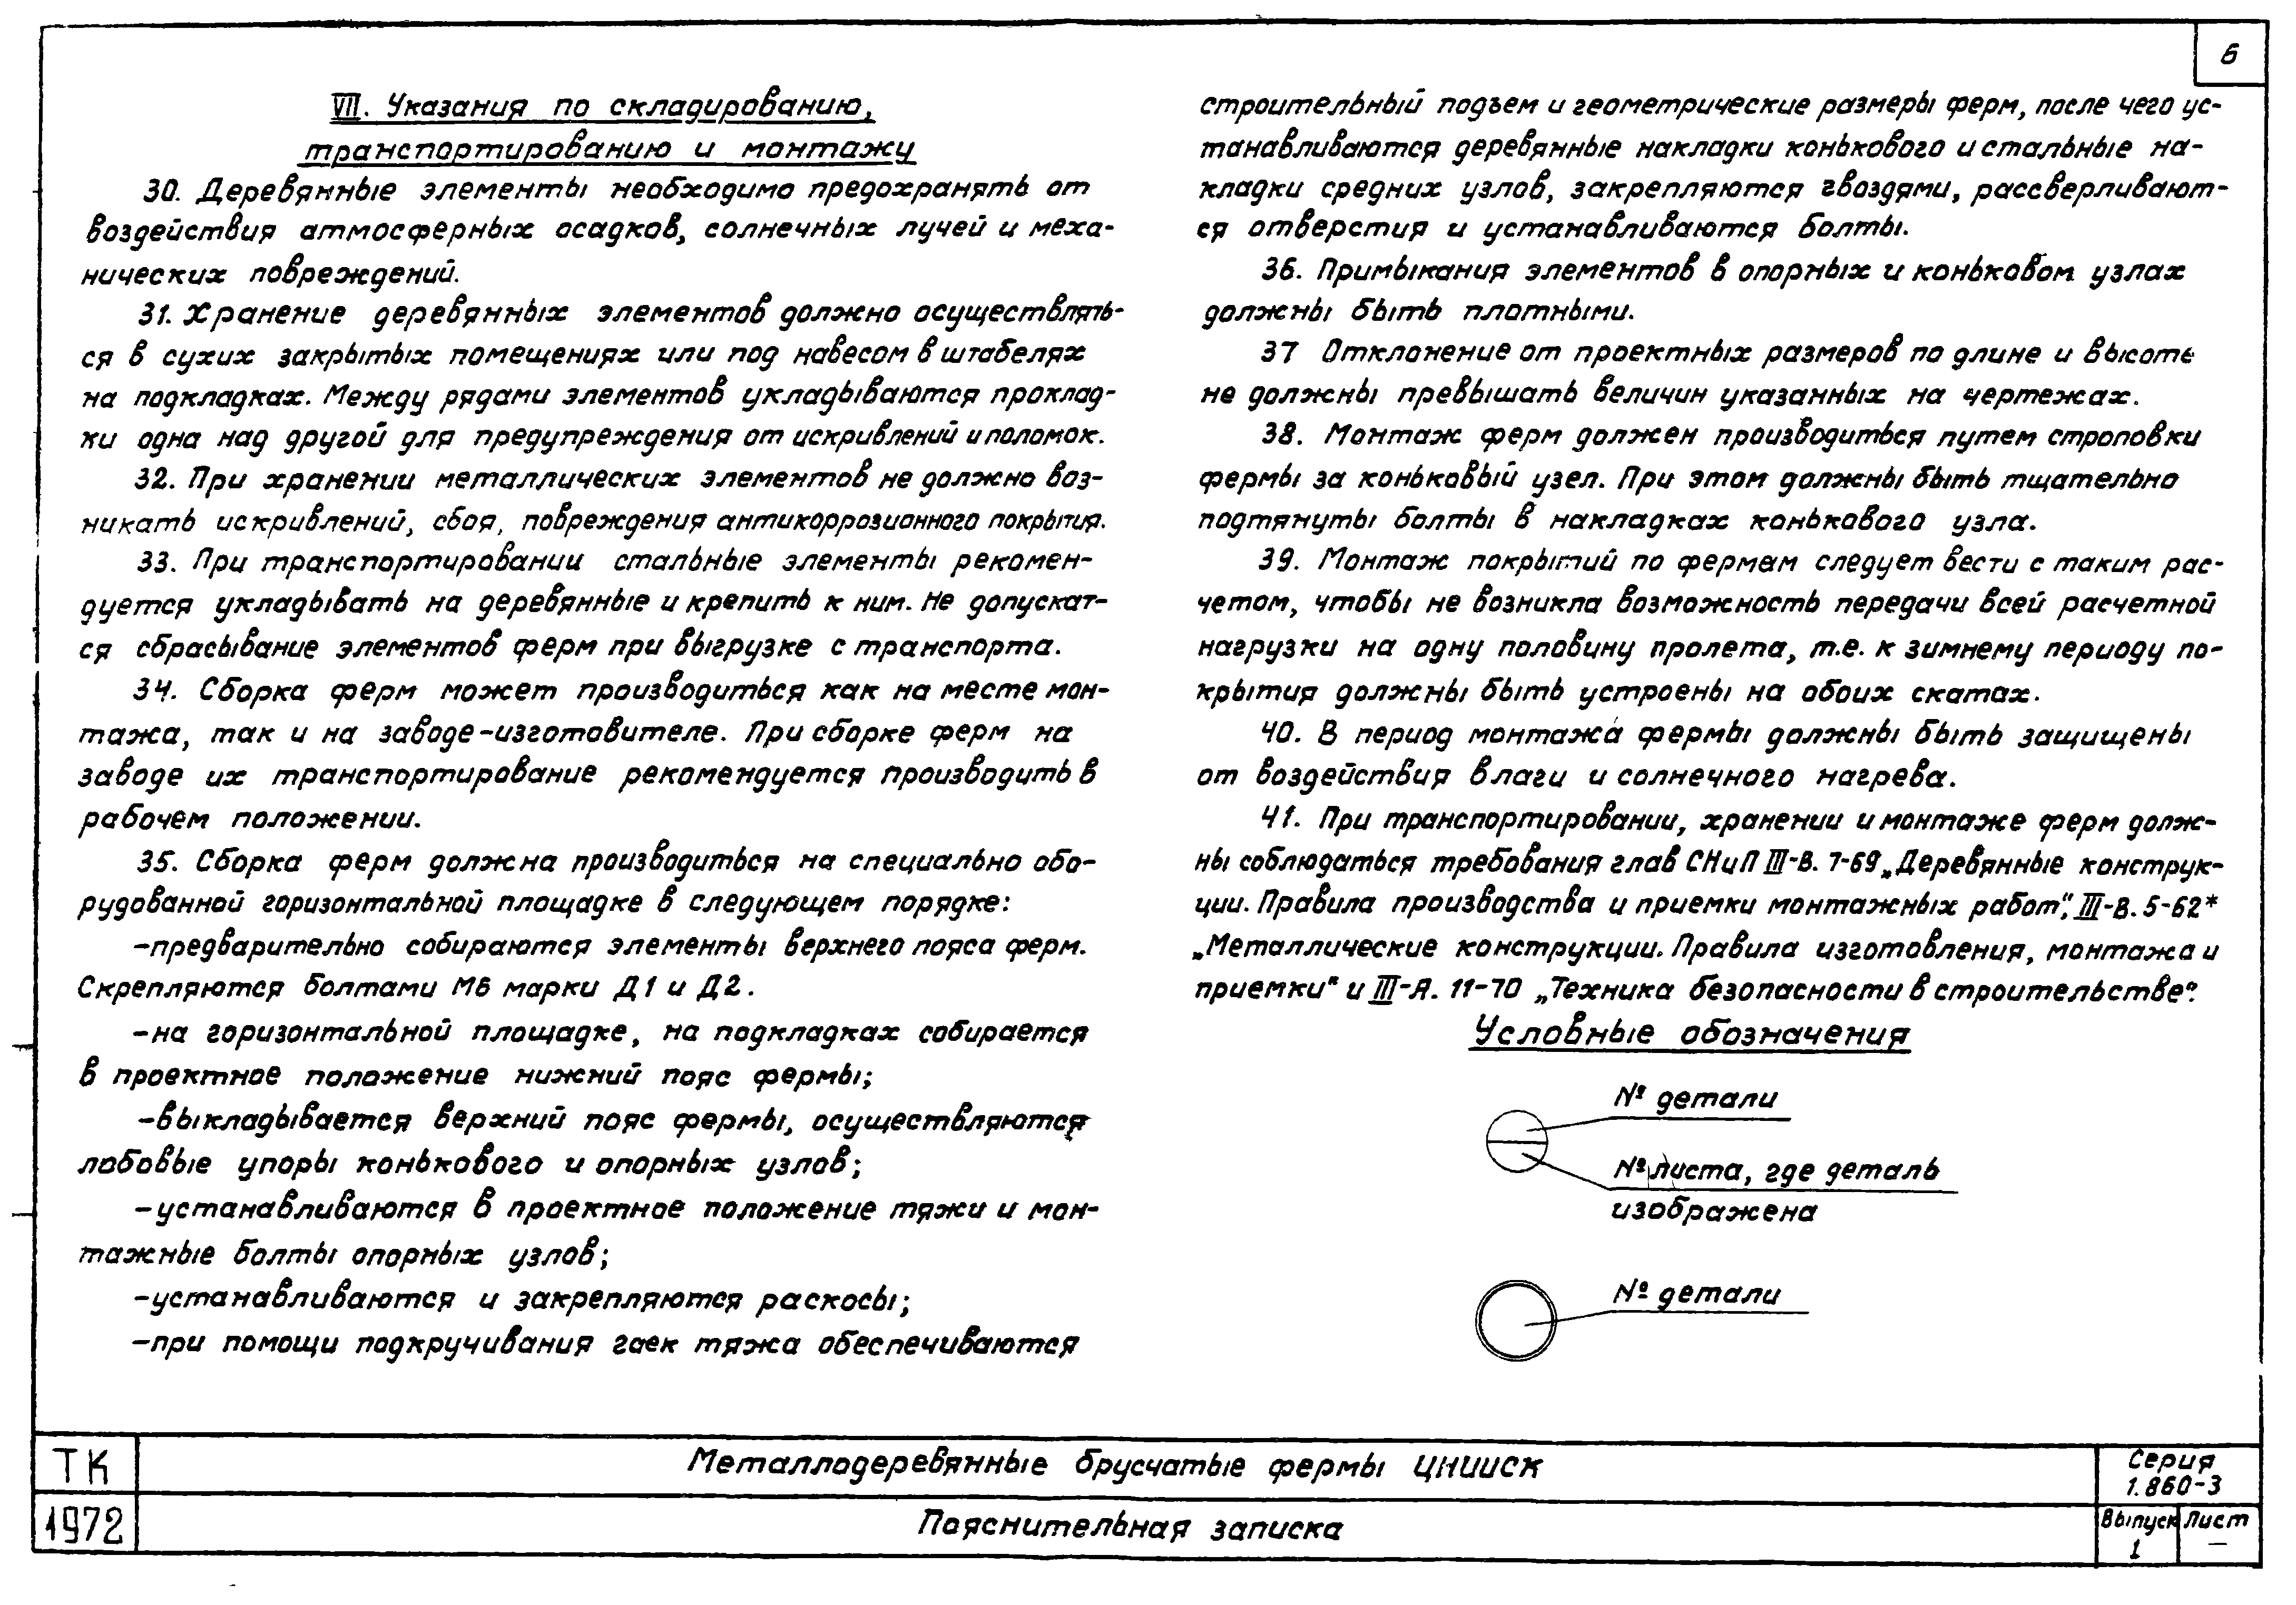 6
VII. Указания по складированию,
транспортированию и монтажу
30. Деревянные элементы необходимо предохранять от
воздействия атмосферных осадков, солнечных лучей и меха-
нических повреждений.
31. Хранение деревянных элементов должно осуществлять-
ся в сухих закрытых помещениях или под навесом в штабелях
на подкладках. Между рядами элементов укладываются проклад-
ки одна над другой для предупреждения от искривлений и поломок.
32. При хранении металлических элементов не должно воз-
никать искривлений, сбоя, повреждения антикоррозионного покрытия.
33. При транспортировании стальные элементы рекомен-
дуется укладывать на деревянные и крепить к ним. Не допускат-
ся сбрасывание элементов ферм при выгрузке с транспорта.
34. Сборка ферм может производиться как на месте мон-
тажа, так и на заводе-изготовителе. При сборке ферм на
заводе их транспортирование рекомендуется производить в
рабочем положении.
35. Сборка ферм должна производиться на специально обо-
рудованной горизонтальной площадке в следующем порядке:
-предварительно собираются элементы верхнего пояса ферм.
Скрепляются болтами М6 марки Д1 и Д2.
-на горизонтальной площадке, на подкладках собирается
в проектное положение нижний пояс фермы;
-выкладывается верхний пояс фермы, осуществляются
лобовые упоры конькового и опорных узлов;
-устанавливаются в проектное положение тяжи и мон-
тажные болты опорных узлов;
-устанавливаются и закрепляются раскосы;
-при помощи подкручивания гаек тяжа обеспечиваются
строительный подъем и геометрические размеры ферм, после чего ус-
танавливаются деревянные накладки конькового и стальные на-
кладки средних узлов, закрепляются гвоздями, рассверливают-
ся отверстия и устанавливаются болты.
36. Примыкания элементов в опорных и коньковом узлах
должны быть плотными.
37 Отклонение от проектных размеров по длине и высоте
не должны превышать величин указанных на чертежах.
38. Монтаж ферм должен производиться путем строповки
фермы за коньковый узел. При этом должны быть тщательно
подтянуты болты в накладках конькового узла.
39. Монтаж покрытий по фермам следует вести с таким рас-
четом, чтобы не возникла возможность передачи всей расчетной
нагрузки на одну половину пролета, т.е. к зимнему периоду по-
крытия должны быть устроены на обоих скатах.
40. В период монтажа фермы должны быть защищены
от воздействия влаги и солнечного нагрева.
41. При транспортировании, хранении и монтаже ферм долж-
ны соблюдаться требования глав СНиП III-В. 7-69 „Деревянные конструк-
ции. Правила производства и приемки монтажных работ", III-В. 5-62*
„Металлические конструкции. Правила изготовления, монтажа и
приемки" и III-А. 11-70 „Техника безопасности в строительстве".
Условные обозначения
№ детали
№ листа, где деталь
изображена
№ детали
ТК
1972
Металлодеревянные брусчатые фермы ЦНИИСК
Пояснительная записка
Серия
1.860-3
Выпуск Лист
1 —